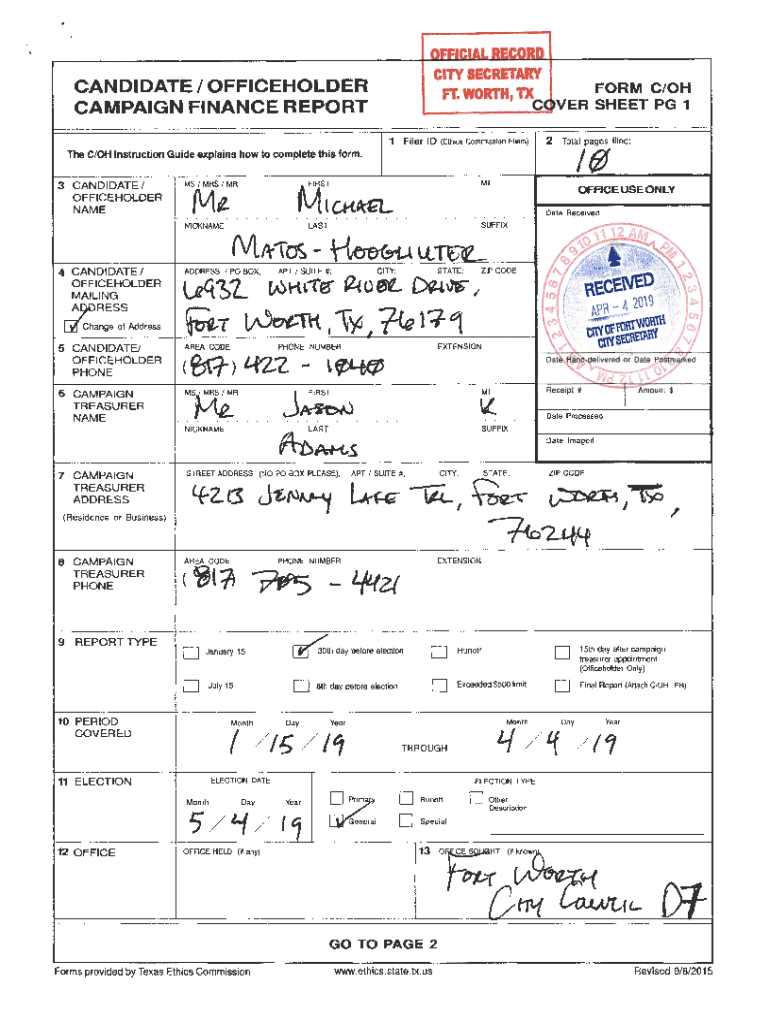 OFFICIAL RECORD
CITY SECRETARY
FT. WORTH, TX
CANDIDATE / OFFICEHOLDER
CAMPAIGN FINANCE REPORT
FORM C/OH
COVER SHEET PG 1
The C/OH Instruction Guide explains how to complete this form.
1 Filer ID (Ethics Commission Filers)
2 Total pages filed:
10
3 CANDIDATE / OFFICEHOLDER NAME
MS / MRS / MR FIRST MI
MR MICHAEL
NICKNAME LAST SUFFIX
MATOS - HOOGHUITER
OFFICE USE ONLY
Date Received
11 12 AM PM
RECEIVED
APR - 4 2019
CITY OF FORT WORTH
CITY SECRETARY
4 CANDIDATE / OFFICEHOLDER MAILING ADDRESS
Change of Address
ADDRESS / PO BOX; APT / SUITE #; CITY; STATE; ZIP CODE
6932 WHITE RIVER DRIVE,
FORT WORTH, TX, 76179
5 CANDIDATE/ OFFICEHOLDER PHONE
AREA CODE PHONE NUMBER EXTENSION
(817) 422 - 1040
Date Hand-delivered or Date Postmarked
6 CAMPAIGN TREASURER NAME
MS / MRS / MR FIRST MI
MR JASON K
NICKNAME LAST SUFFIX
ADAMS
Receipt # Amount $
Date Processed
Date Imaged
7 CAMPAIGN TREASURER ADDRESS
(Residence or Business)
STREET ADDRESS (NO PO BOX PLEASE); APT / SUITE #; CITY; STATE; ZIP CODE
4213 JENNY LAKE TRL, FORT WORTH, TX,
76244
8 CAMPAIGN TREASURER PHONE
AREA CODE PHONE NUMBER EXTENSION
(817) 705 - 4421
9 REPORT TYPE
January 15 30th day before election Runoff 15th day after campaign treasurer appointment (Officeholder Only)
July 15 8th day before election Exceeded $500 limit Final Report (Attach C/OH - FR)
10 PERIOD COVERED
Month Day Year
1 / 15 / 19
THROUGH
Month Day Year
4 / 4 / 19
11 ELECTION
ELECTION DATE
Month Day Year
5 / 4 / 19
ELECTION TYPE
Primary Runoff Other Description
General Special
12 OFFICE
OFFICE HELD (if any)
13 OFFICE SOUGHT (if known)
FORT WORTH
CITY COUNCIL D7
GO TO PAGE 2
Forms provided by Texas Ethics Commission www.ethics.state.tx.us Revised 9/8/2015